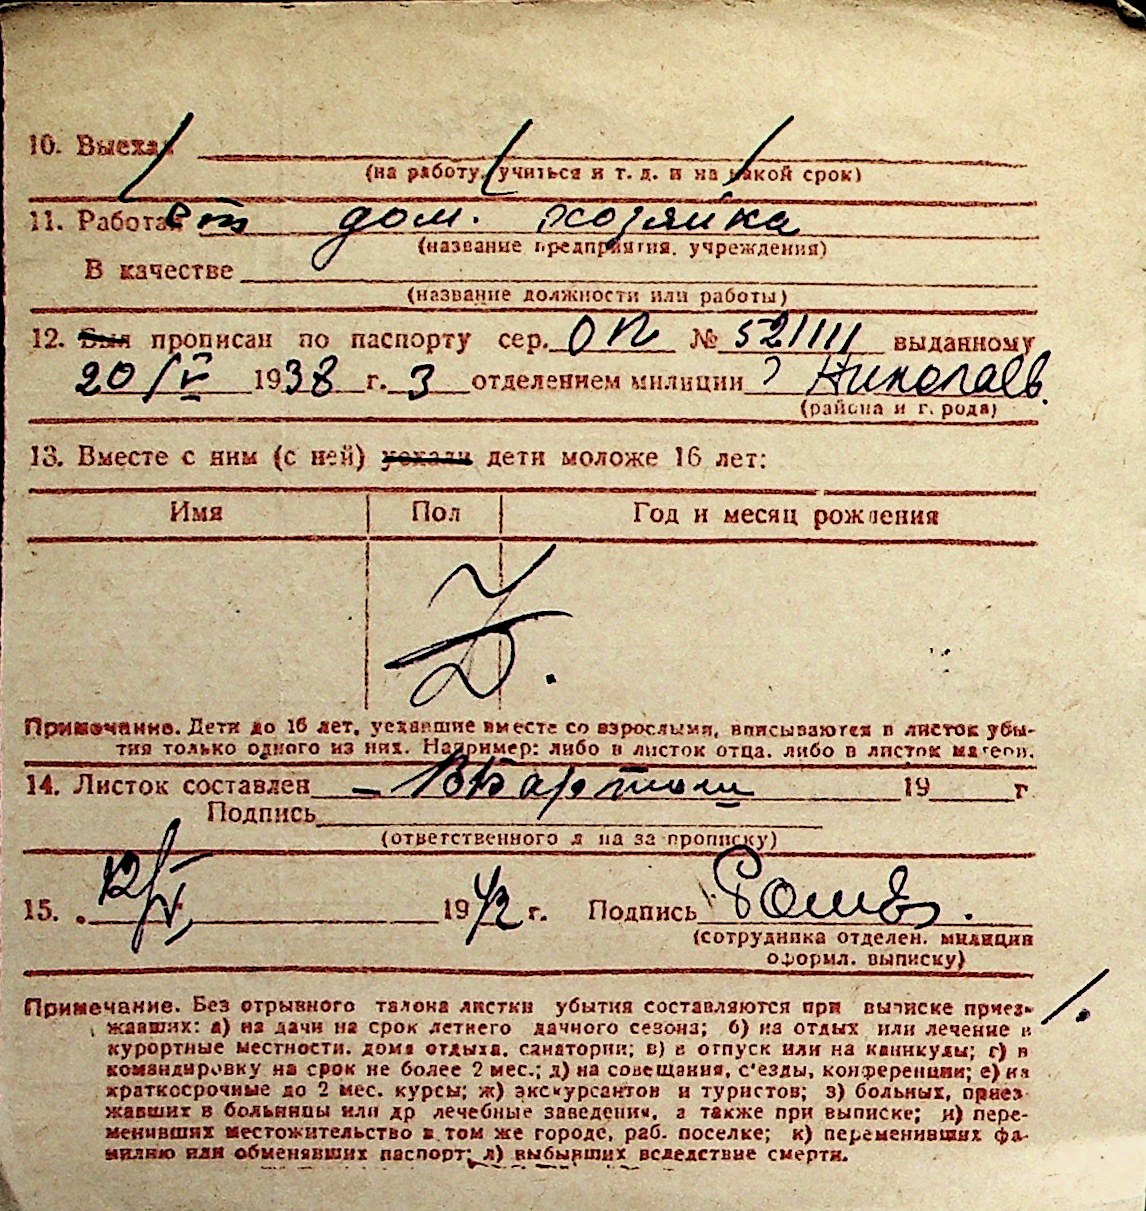 10. Выехал
(на работу, учиться и т. д. и на какой срок)
11. Работает дом. хозяйка
(название предприятия, учреждения)
В качестве
(название должности или работы)
12. Был прописан по паспорту сер. ОП № 521111 выданному
20/V 1938 г. 3 отделением милиции Николаев.
(района и города)
13. Вместе с ним (с ней) уехали дети моложе 16 лет:
Имя Пол Год и месяц рождения
Примечание. Дети до 16 лет, уехавшие вместе со взрослыми, вписываются в листок убы-
тия только одного из них. Например: либо в листок отца, либо в листок матери.
14. Листок составлен 19 г
Подпись
(ответственного л на за прописку)
15. 12/V 1942 г. Подпись
(сотрудника отделен. милиции
оформл. выписку)
Примечание. Без отрывного талона листки убытия составляются при выписке приез-
жавших: а) на дачи на срок летнего дачного сезона; б) на отдых или лечение в
курортные местности, дома отдыха, санатории; в) в отпуск или на каникулы; г) в
командировку на срок не более 2 мес.; д) на совещания, с'езды, конференции; е) на
краткосрочные до 2 мес. курсы; ж) экскурсантов и туристов; з) больных, приез-
жавших в больницы или др лечебные заведения, а также при выписке; и) пере-
менивших местожительство в том же городе, раб. поселке; к) переменивших фа-
милию или обменявших паспорт; л) выбывших вследствие смерти.